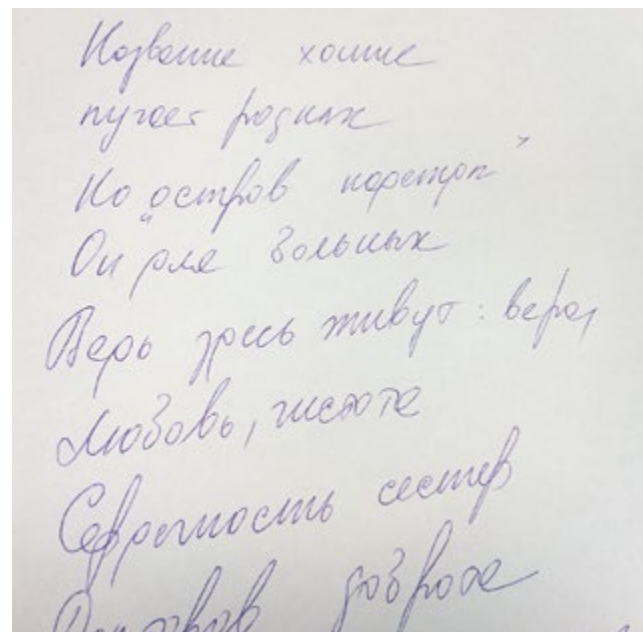 Название хоспис
пугает родных
Но "остров надежды"
Он для больных
Ведь здесь живут: вера,
Любовь, чистота
Сердечность сестёр
Докторов доброта